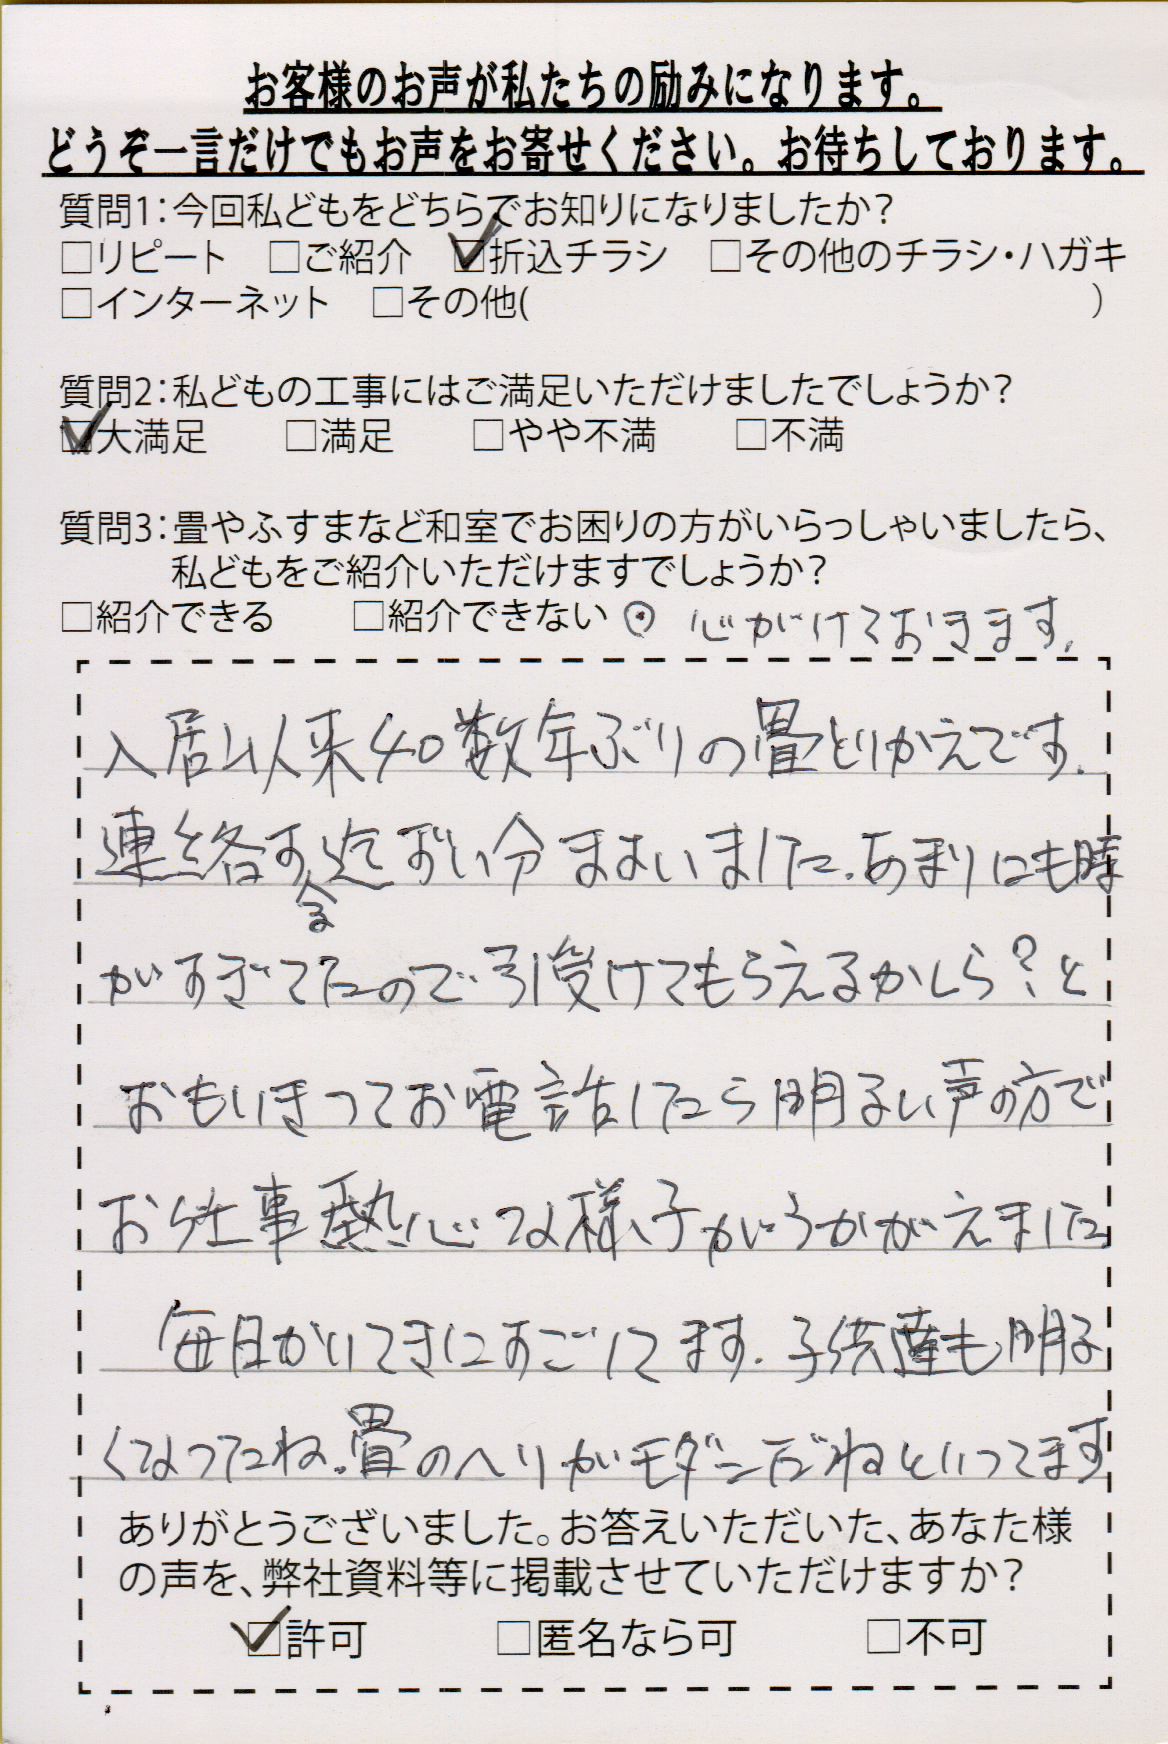 お客様のお声が私たちの励みになります。
どうぞ一言だけでもお声をお寄せください。お待ちしております。
質問1：今回私どもをどちらでお知りになりましたか？
□リピート　□ご紹介　☑折込チラシ　□その他のチラシ・ハガキ
□インターネット　□その他(　　　　　　　)
質問2：私どもの工事にはご満足いただけましたでしょうか？
☑大満足　□満足　□やや不満　□不満
質問3：畳やふすまなど和室でお困りの方がいらっしゃいましたら、
私どもをご紹介いただけますでしょうか？
□紹介できる　□紹介できない ⊙ 心がけておきます.
入居以来40数年ぶりの畳とりかえです.
連絡する迄ずい分まよいました.あまりにも時
がすぎてたので引受けてもらえるかしら？と
おもいきってお電話したら明るい声の方で
お仕事熱心な様子がうかがえました
毎日かいてきにすごしてます.子供達も明る
くなったね.畳のヘリがモダンだねといってます
ありがとうございました。お答えいただいた、あなた様
の声を、弊社資料等に掲載させていただけますか？
☑許可　□匿名なら可　□不可